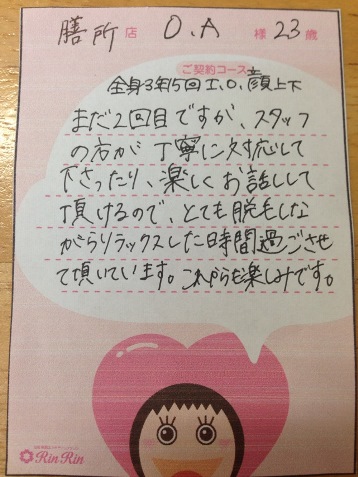 膳所店 O.A 様 23歳
ご契約コース
全身3年15回 I、O、顔上下
まだ2回目ですが、スタッフ
の方が丁寧に対応して
下さったり、楽しくお話しして
頂けるので、とても脱毛しな
がらリラックスした時間過ごさせ
て頂いています。これからも楽しみです。
RinRin